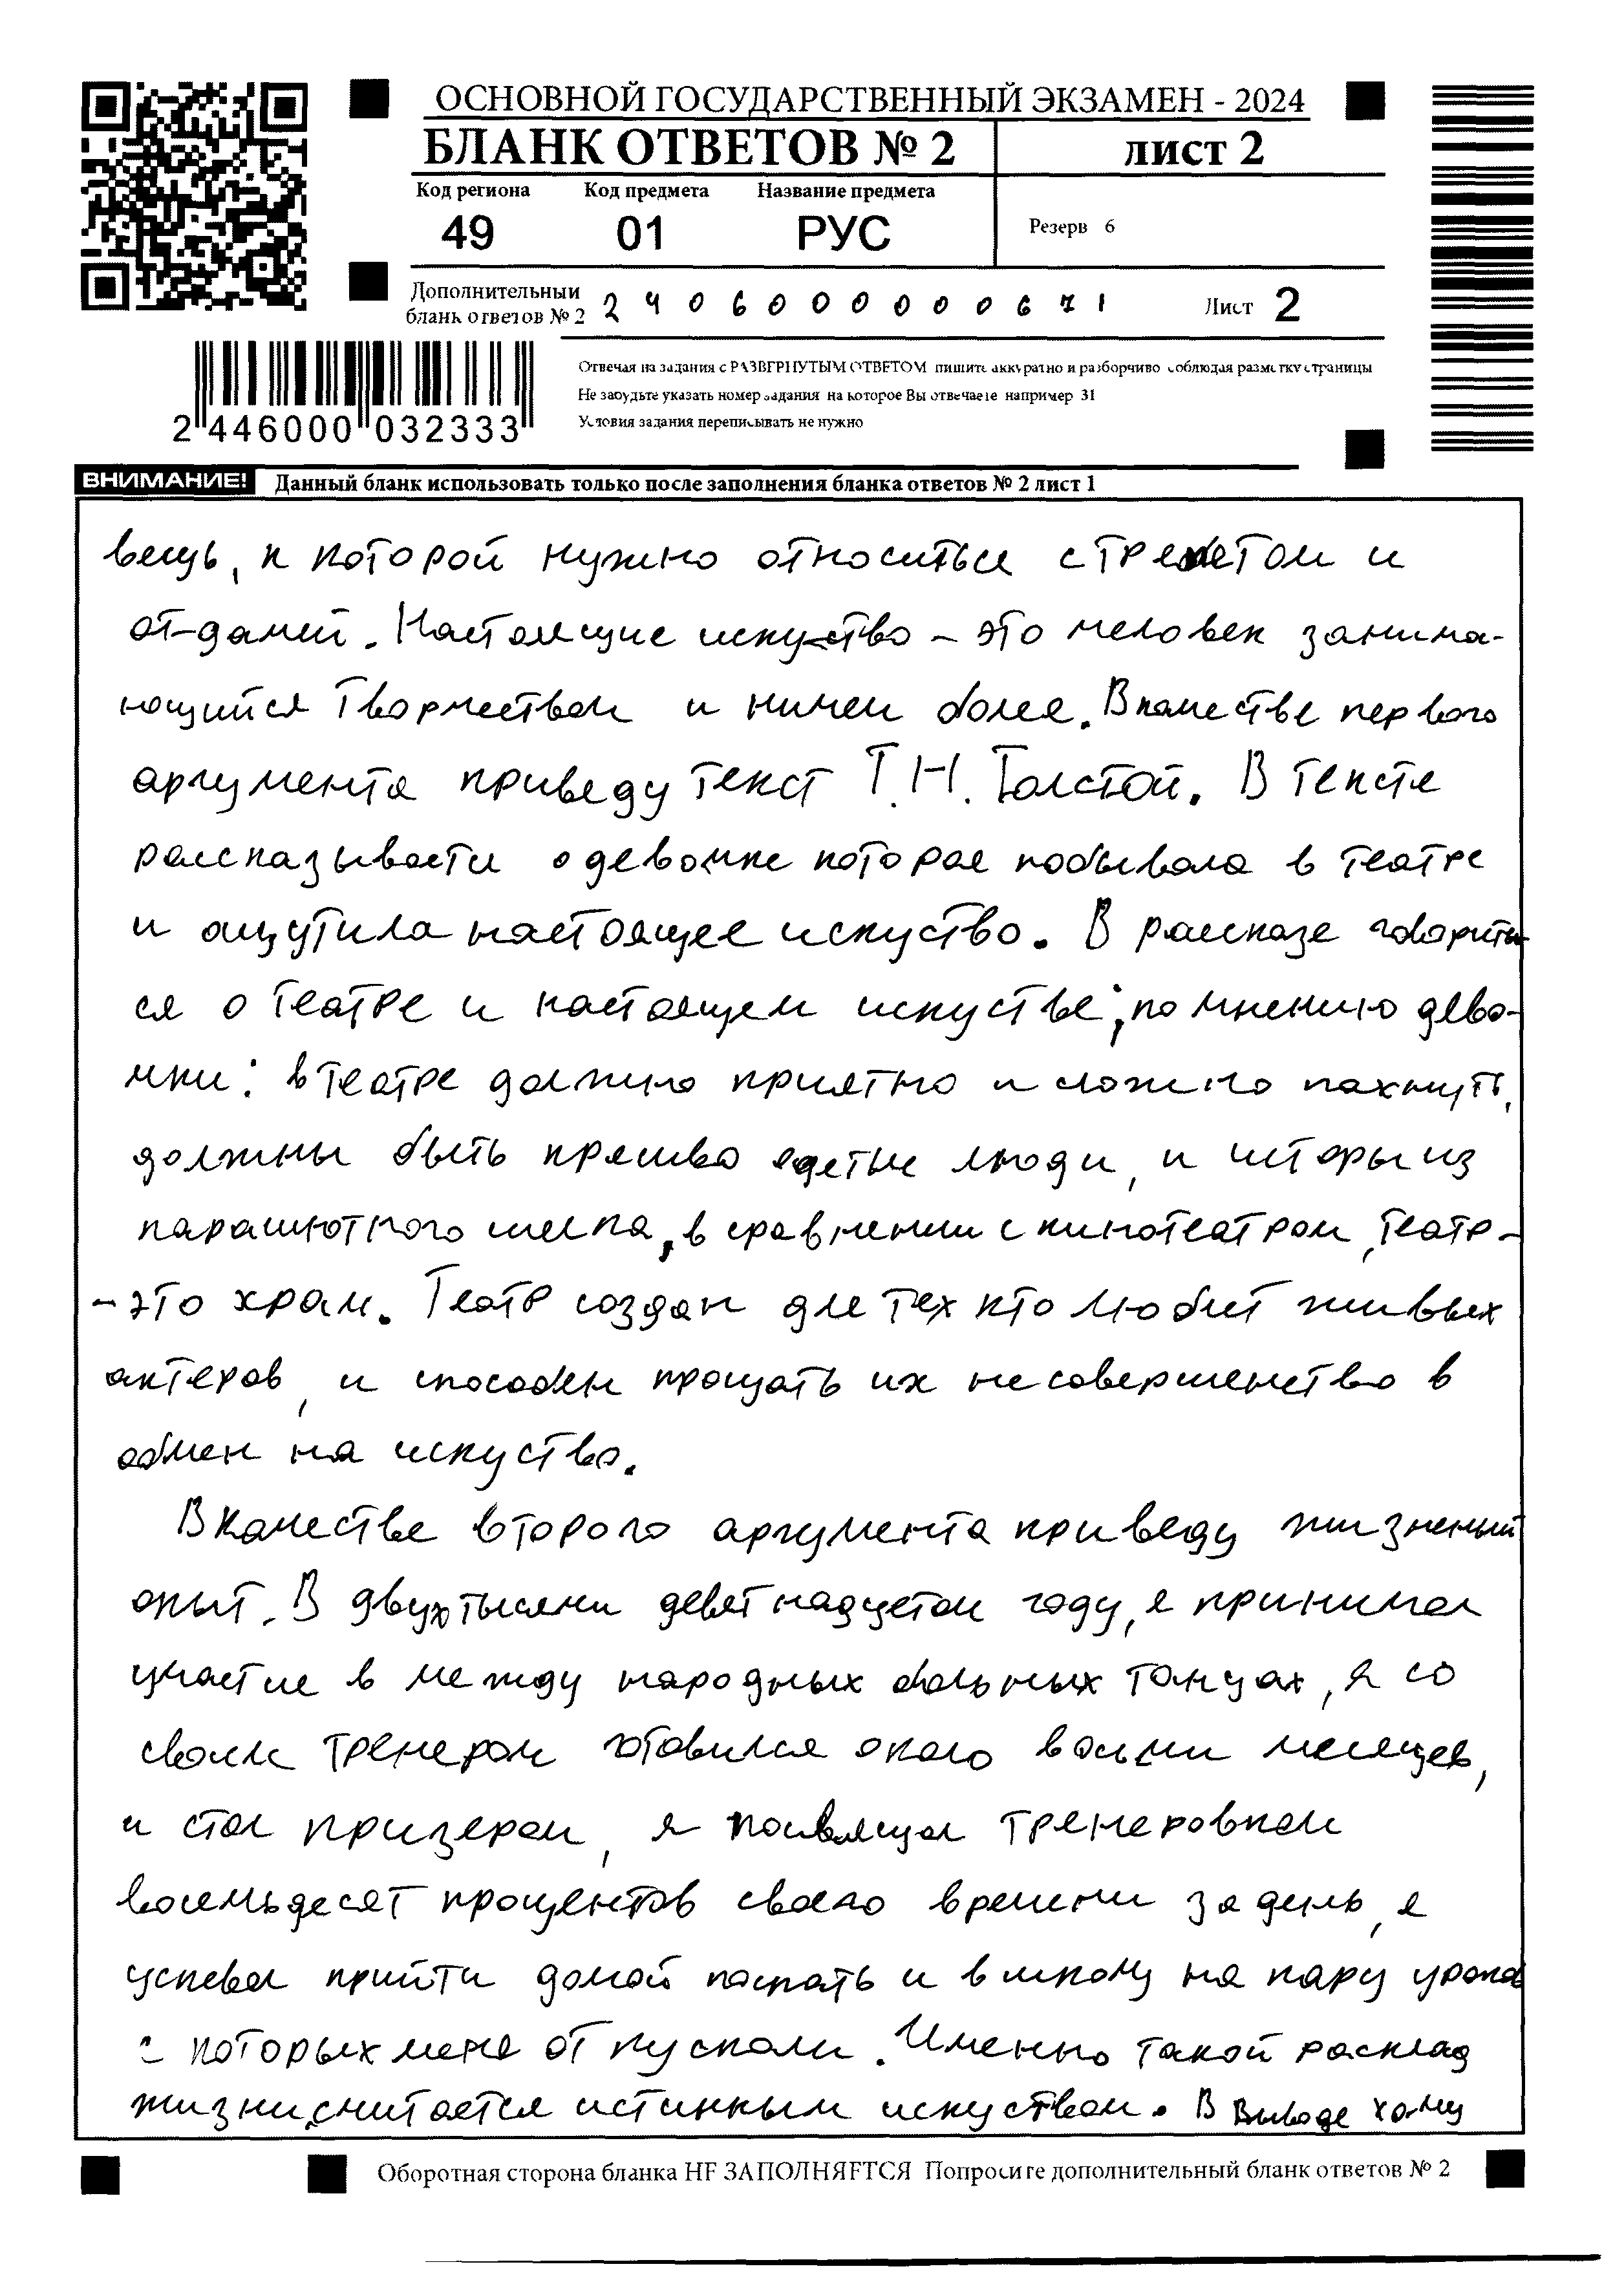 ОСНОВНОЙ ГОСУДАРСТВЕННЫЙ ЭКЗАМЕН - 2024
БЛАНК ОТВЕТОВ № 2 ЛИСТ 2
Код региона Код предмета Название предмета
49 01 РУС Резерв 6
Дополнительный
бланк ответов № 2 2406000000671 Лист 2
Отвечая на задания с РАЗВЕРНУТЫМ ОТВЕТОМ пишите аккуратно и разборчиво соблюдая разметку страницы
Не забудьте указать номер задания на которое Вы отвечаете например 31
Условия задания переписывать не нужно
2 446000 032333
ВНИМАНИЕ! Данный бланк использовать только после заполнения бланка ответов № 2 лист 1
вещь, к которой нужно относиться с трепетом и
от-дачей. Настоящие искуство – это человек занима-
ющийся творчеством и ничем более. В качестве первого
аргумента приведу текст Т.Н. Толстой. В тексте
рассказывается о девочке которая побывала в театре
и ощутила настоящее искуство. В рассказе говорить-
ся о театре и настоящем искустве; по мнению дево-
чки: в театре должно приятно и сложно пахнуть,
должны быть красиво одетые люди, и шторы из
парашютного шелка, в сравнении с кинотеатром, театр-
- это храм. Театр создан для тех кто любит живых
актеров, и способен прощать их несовершенство в
обмен на искуство.
В качестве второго аргумента приведу жизненый
опыт. В двухтысячи девятнадцатом году, я принимал
участие в между народных бальных танцах, я со
своим тренером готовился около восьми месяцев,
и стал призером, я посвящал тренеровкам
восемьдесят процентов своего времени за день, я
успевал прийти домой поспать и в школу на пару уроков
с которых меня от пускали. Именно такой расклад
жизни, считается истинным искуством. В выводе хочу
Оборотная сторона бланка НЕ ЗАПОЛНЯЕТСЯ Попросите дополнительный бланк ответов № 2